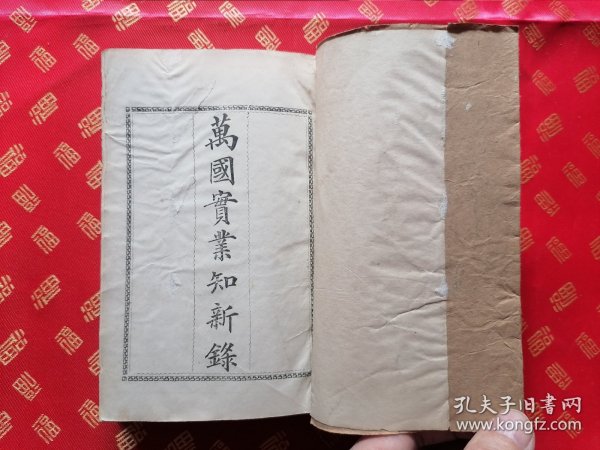 萬國實業知新錄
孔夫子旧书网
www.kongfz.com